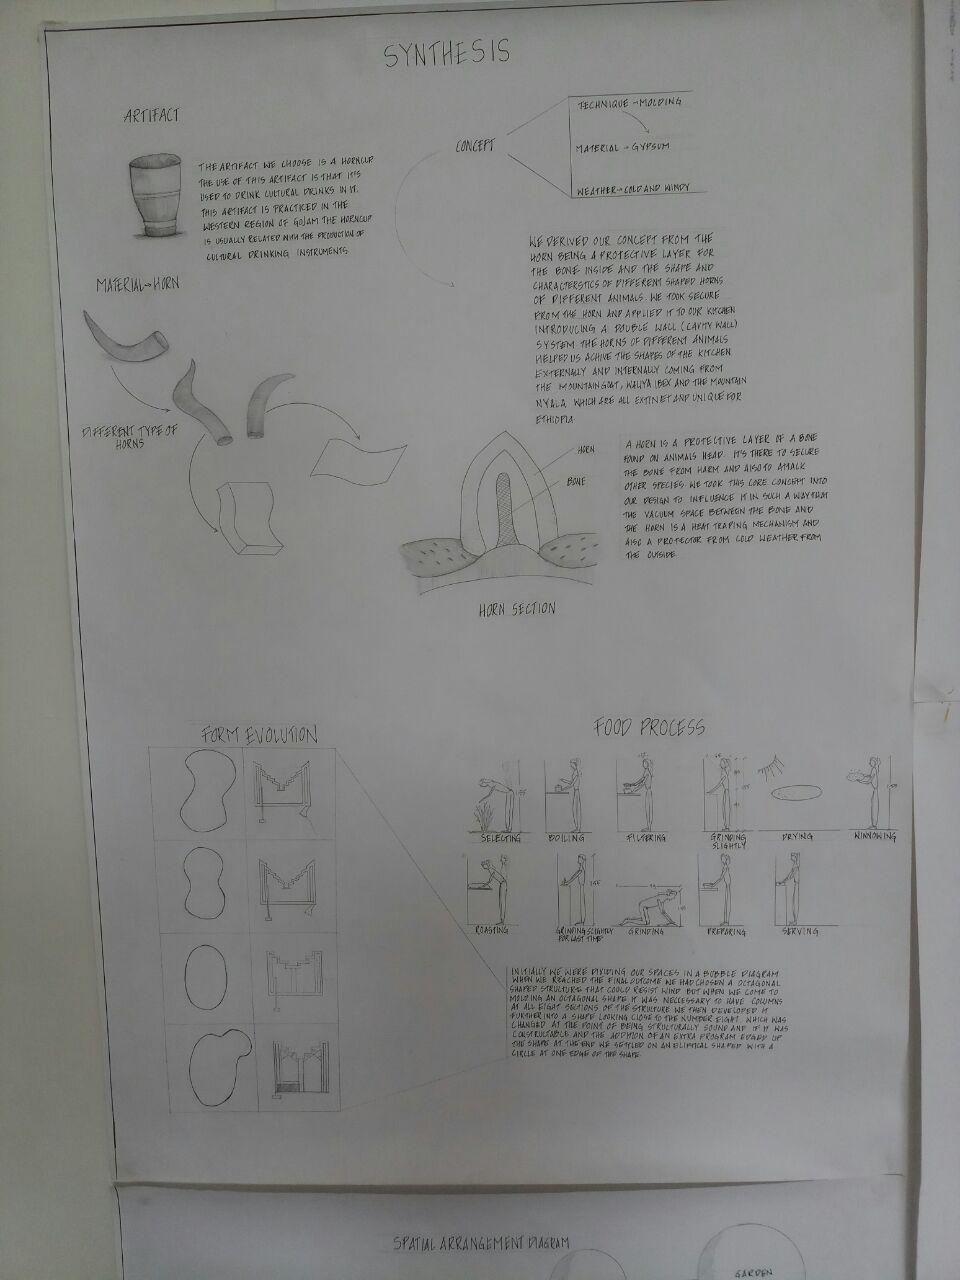 SYNTHESIS
ARTIFACT
THE ARTIFACT WE CHOOSE IS A HORNCUP
THE USE OF THIS ARTIFACT IS THAT IT'S
USED TO DRINK CULTURAL DRINKS IN IT.
THIS ARTIFACT IS PRACTICED IN THE
WESTERN REGION OF GOJAM THE HORNCUP
IS USUALLY RELATED WITH THE PRODUCTION OF
CULTURAL DRINKING INSTRUMENTS
MATERIAL→HORN
DIFFERENT TYPE OF
HORNS
CONCEPT
TECHNIQUE→MOLDING
MATERIAL→GYPSUM
WEATHER→COLD AND WINDY
WE DERIVED OUR CONCEPT FROM THE
HORN BEING A PROTECTIVE LAYER FOR
THE BONE INSIDE AND THE SHAPE AND
CHARACTERSTICS OF DIFFERENT SHAPED HORNS
OF DIFFERENT ANIMALS. WE TOOK SECURE
FROM THE HORN AND APPLIED IT TO OUR KITCHEN
INTRODUCING A DOUBLE WALL (CAVITY WALL)
SYSTEM THE HORNS OF DIFFERENT ANIMALS
HELPED US ACHIVE THE SHAPES OF THE KITCHEN
EXTERNALLY AND INTERNALLY COMING FROM
THE MOUNTAIN GOAT, WALIYA IBEX AND THE MOUNTAIN
NYALA WHICH ARE ALL EXTINET AND UNIQUE FOR
ETHIOPIA
HORN
BONE
HORN SECTION
A HORN IS A PROTECTIVE LAYER OF A BONE
FOUND ON ANIMALS HEAD. IT'S THERE TO SECURE
THE BONE FROM HARM AND ALSO TO ATTACK
OTHER SPECIES. WE TOOK THIS CORE CONCEPT INTO
OUR DESIGN TO INFLUENCE IT IN SUCH A WAY THAT
THE VACUUM SPACE BETWEEN THE BONE AND
THE HORN IS A HEAT TRAPING MECHANISM AND
ALSO A PROTECTOR FROM COLD WEATHER FROM
THE OUTSIDE
FORM EVOLUTION
FOOD PROCESS
SELECTING
BOILING
FILTERING
GRINDING
SLIGHTLY
DRYING
WINNOWING
ROASTING
GRINDING SLIGHTLY
FOR LAST TIME
GRINDING
PREPARING
SERVING
INITIALLY WE WERE DIVIDING OUR SPACES IN A BUBBLE DIAGRAM
WHEN WE REACHED THE FINAL OUTCOME WE HAD CHOSEN A OCTAGONAL
SHAPED STRUCTURE THAT COULD RESIST WIND BUT WHEN WE COME TO
MOLDING AN OCTAGONAL SHAPE IT WAS NECCESSARY TO HAVE COLUMNS
AT ALL EIGHT SECTIONS OF THE STRUCTURE WE THEN DEVELOPED IT
FURTHER INTO A SHAPE LOOKING CLOSE TO THE NUMBER EIGHT WHICH WAS
CHANGED AT THE POINT OF BEING STRUCTURALLY SOUND AND IF IT WAS
CONSTRUCTABLE AND THE ADDITION OF AN EXTRA PROGRAM EDGED UP
THE SHAPE AT THE END WE SETTLED ON AN ELIPTICAL SHAPED WITH A
CIRCLE AT ONE EDGE OF THE SHAPE
SPATIAL ARRANGEMENT DIAGRAM
GARDEN